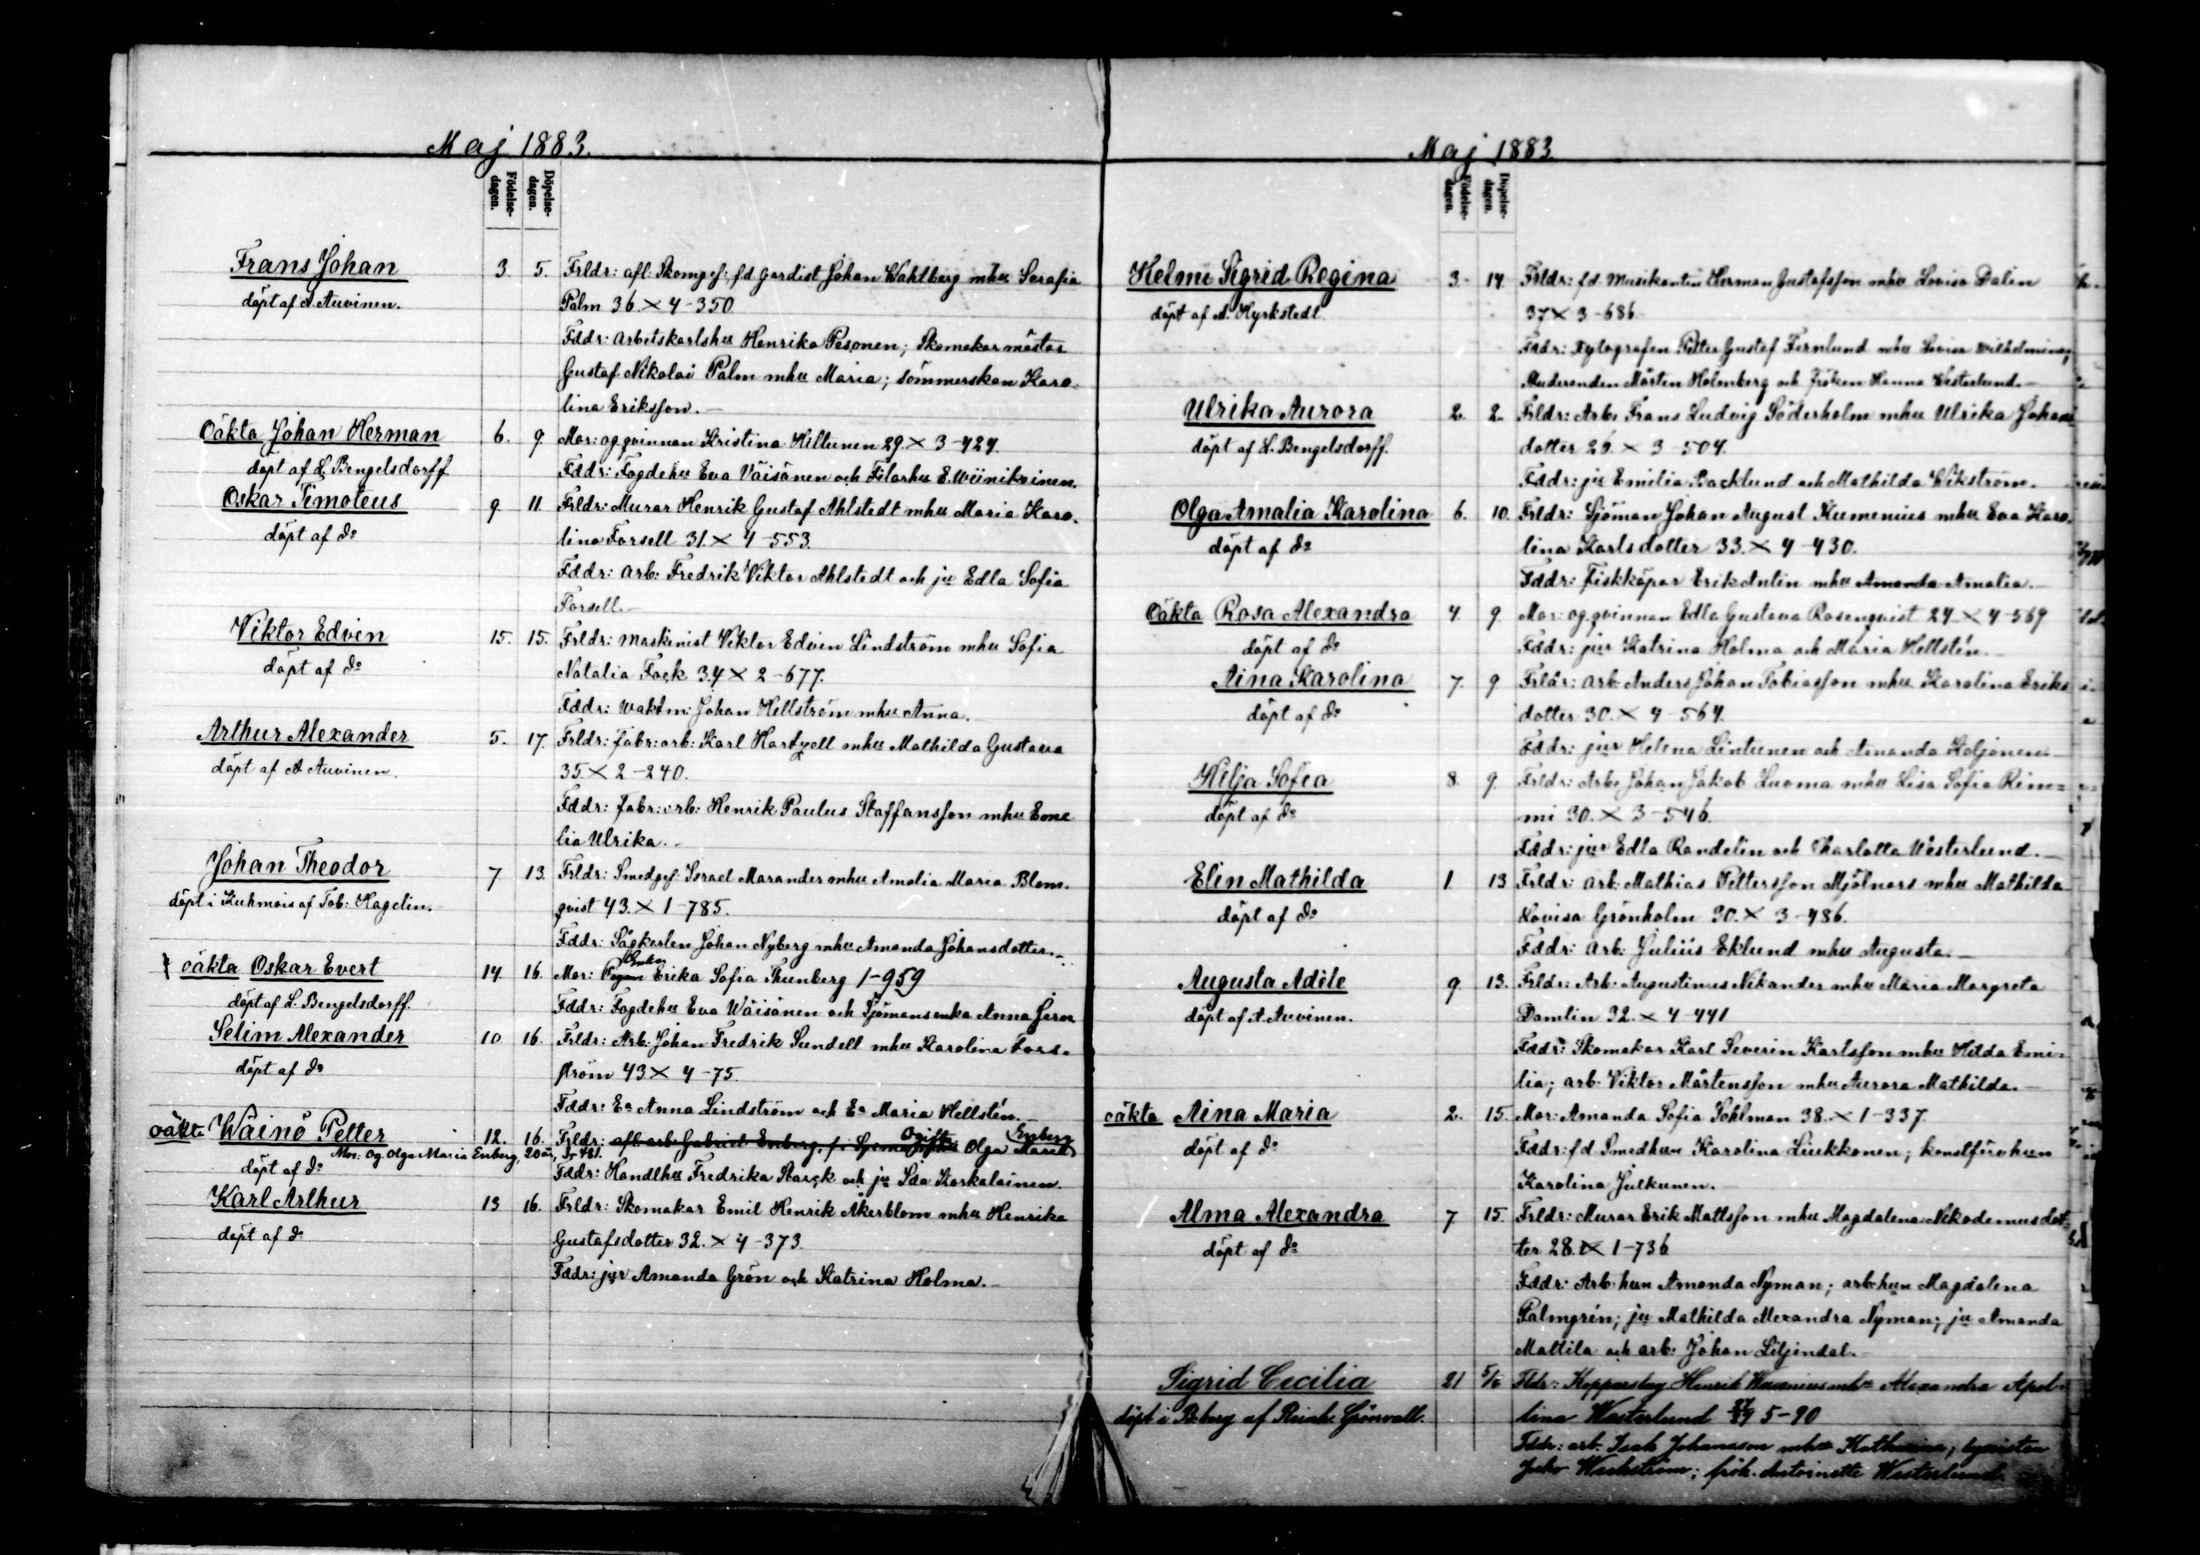 Maj 1883.
Födelse-dagen.
Döpelse-dagen.
Frans Johan 3. 5. Frldr: afl. Skomgs: f.d. gardist Johan Wahlberg mhu Serafia
döpt af A. Auvinen. Palm 36. × 4-350
Fddr: Arbetskarlshu Henrika Pesonen; Skomakarmästar
Gustaf Nikolai Palm mhu Maria; sömmerskan Karo-
lina Eriksson.
Oäkta Johan Herman 6. 9. Mor: og. qvinnan Kristina Hiltunen 29. × 3-424.
döpt af L. Bengelsdorff Fddr: Fogdehu Eva Väisänen och Filarhu E. Wiinikainen.
Oskar Timoteus 9 11. Frldr: Murar Henrik Gustaf Ahlstedt mhu Maria Karo-
döpt af do lina Forsell 31. × 4-553.
Fddr: arb: Fredrik Viktor Ahlstedt och ju Edla Sofia
Forsell.
Viktor Edvin 15. 15. Frldr: Maskinist Viktor Edvin Lindström mhu Sofia
döpt af do Natalia Fock 34 × 2-677.
Fddr: Waktm: Johan Hellström mhu Anna.
Arthur Alexander 5. 17. Frldr: fabr: arb: Karl Hartzell mhu Mathilda Gustava
döpt af A Auvinen. 35 × 2-240.
Fddr: fabr: arb: Henrik Paulus Staffansson mhu Eme
lia Ulrika.
Johan Theodor 7 13. Frldr: Smedges: Israel Marander mhu Amalia Maria Blom-
döpt i Kuhmois af Tob: Hagelin. qvist 43. × 1-785.
Fddr: Sågkarlen Johan Nyberg mhu Amanda Johansdotter.
oäkta Oskar Evert 14 16. Mor: Enkan Erika Sofia Thunberg 1-959
döpt af L. Bengelsdorff. Fddr: Fogdehu Eva Wäisänen och Sjömansenka Anna
Selim Alexander 10 16. Frldr: Arb: Johan Fredrik Sundell mhu Karolina Fors-
döpt af do ström 43 × 4-75.
Fddr: Ea Anna Lindström och Ea Maria Hellstén.
oäkta Wäinö Petter 12. 16. Frldr: afl. arb: Gabriel Enberg, Ogifta Olga Maria Enberg
döpt af do Mor: Og. Olga Maria Enberg, 20 år, 481.
Fddr: Handlhu Fredrika Starck och ju Ida Korkalainen.
Karl Arthur 13 16. Frldr: Skomakar Emil Henrik Åkerblom mhu Henrika
döpt af do Gustafsdotter 32. × 4-373.
Fddr: jur Amanda Grön och Katrina Holma.
Maj 1883
Födelse-dagen.
Döpelse-dagen.
Helmi Sigrid Regina 3. 14 Frldr: f.d. Musikanten Herman Gustafsson mhu Lovisa Dalin
döpt af A. Hyrkstedt. 37 × 3-686
Fddr: Xylografen Petter Gustaf Fernlund mhu Lovisa Wilhelmina;
Studeranden Mårten Holmberg och fröken Hanna Westerlund.
Ulrika Aurora 2. 2. Frldr: Arb: Frans Ludvig Söderholm mhu Ulrika Johans
döpt af L. Bengelsdorff. dotter 26. × 3-504.
Fddr: ju Emilia Backlund och Mathilda Wikström.
Olga Amalia Karolina 6. 10. Frldr: Sjöman Johan August Kumenius mhu Eva Karo-
döpt af do lina Karlsdotter 33. × 4-430.
Fddr: Fiskköpar Erik Antin mhu Amanda Amalia.
Oäkta Rosa Alexandra 4. 9 Mor: og. qvinnan Edla Gustava Rosenqvist 24. × 4-569
döpt af do Fddr: jur Katrina Holma och Maria Hellstén.
Aina Karolina 7. 9 Frldr: Arb: Anders Johan Tobiasson mhu Karolina Eriks
döpt af do dotter 30. × 4-564.
Fddr: jur Helena Lintunen och Amanda Koljonen
Hilja Sofia 8. 9. Frldr: Arb: Johan Jakob Luoma mhu Lisa Sofia Rim=
döpt af do mi 30. × 3-546.
Fddr: jur Edla Randelin och Charlotta Westerlund.
Elin Mathilda 1. 13 Frldr: arb: Mathias Pettersson Mjölnars mhu Mathilda
döpt af do Lovisa Grönholm 30. × 3-486.
Fddr: Arb: Julius Eklund mhu Augusta.
Augusta Adéle 9 13. Frldr: Arb: Augustinus Nikander mhu Maria Margreta
döpt af A. Auvinen. Damlin 32. × 4-441
Fddr: Skomakar Karl Severin Karlsson mhu Hilda Emi-
lia; arb. Viktor Mårtensson mhu Aurora Mathilda.
oäkta Aina Maria 2. 15. Mor: Amanda Sofia Sohlman 38. × 1-337.
döpt af do Fddr: f.d. Smedhun Karolina Liukkonen; konstförvhun
Karolina Julkunen.
Alma Alexandra 7 15. Frldr: Murar Erik Mattsson mhu Magdalena Nikodemusdot-
döpt af do ter 28. × 1-736
Fddr: Arb: hun Amanda Nyman; arb: hun Magdalena
Palmgrén; ju Mathilda Alexandra Nyman; ju Amanda
Mattila och arb: Johan Liljendal.
Sigrid Cecilia 21 5/6 Fldr: Kopparslag Henrik mhu Alexandra Apol-
döpt i B:borg af Reinh. Grönvall. lina Westerlund 5-90
Fddr: arb. Isak Johansson mhu Katharina;
Weckström; frök. Antoinette Westerlund.